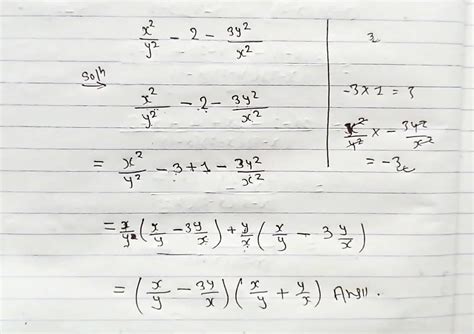 x²/y² - 2 - 3y²/x²
Solⁿ
x²/y² - 2 - 3y²/x²
= x²/y² - 3 + 1 - 3y²/x²
= x/y (x/y - 3y/x) + y/x (x/y - 3y/x)
= (x/y - 3y/x) (x/y + y/x) Ans||.
-3 × 1 = 3
x²/y² × - 3y²/x²
= -3